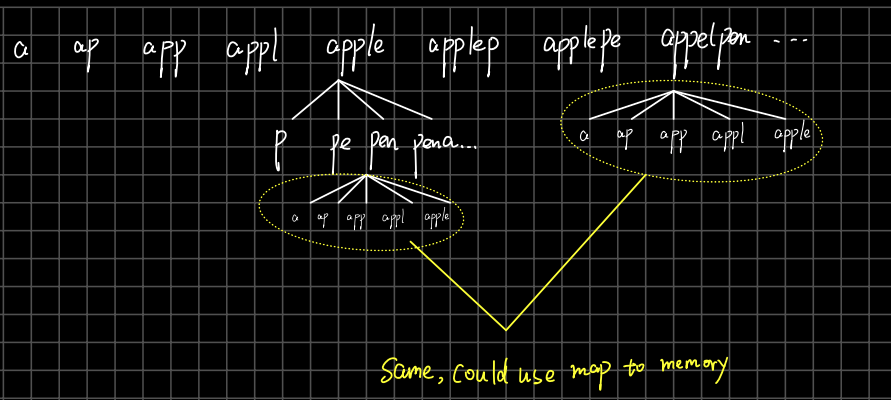 a ap app appl apple applep applepe appelpen ---
p pe pen pena...
a ap app appl apple
a ap app appl apple
Same, could use map to memory